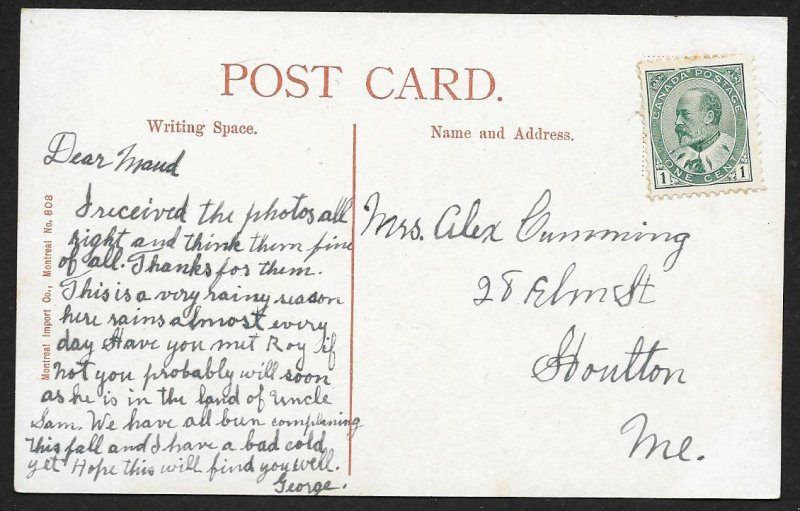 POST CARD.
Writing Space.
Name and Address.
CANADA POSTAGE
1 ONE CENT 1
Montreal Import Co., Montreal No. 808
Dear Maud
I received the photos all
right and think them fine
of all. Thanks for them.
This is a very rainy season
here rains almost every
day Have you met Roy if
not you probably will soon
as he is in the land of Uncle
Sam. We have all bun complaning
this fall and I have a bad cold
yet Hope this will find you well.
George.
Mrs. Alex Cumming
28 Elm St
Houlton
Me.